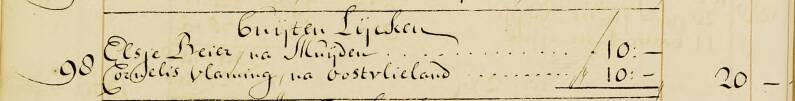 Buijten Lijcken
Elsje Beier, na Muijden . . . . . . . . . . . . 10:-
98 Cornelis Vlaming, na Oostvlieland . . . . . . . . 10:- 20 -